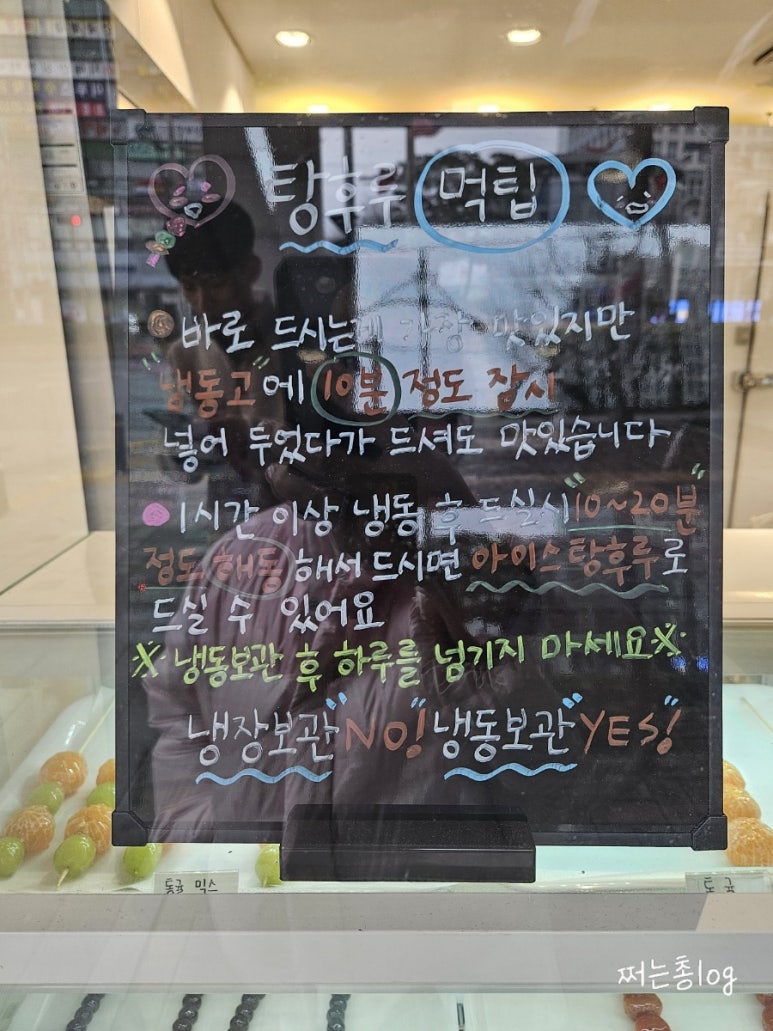 탕후루 먹팁
바로 드시는게 가장 맛있지만
"냉동고"에 10분 정도 잠시
넣어 두었다가 드셔도 맛있습니다
1시간 이상 냉동 후 드실시 "10~20분"
정도 해동 해서 드시면 아이스탕후루로
드실 수 있어요
※ 냉동보관 후 하루를 넘기지 마세요※
냉장보관 "NO!" 냉동보관 "YES!"
통귤 믹스
쩌는총log